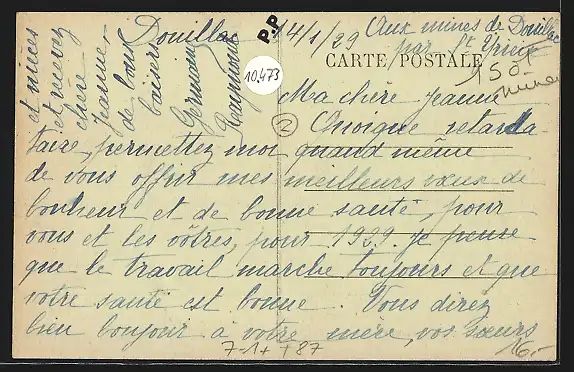 Douillac 14/1/29
Aux mines de Douillac
par St Yrieix
P.P
10,473
CARTE POSTALE
150f
②
Ma chère Jeanne
Quoique retarda-
taire, permettez moi quand même
de vous offrir mes meilleurs vœux de
bonheur et de bonne santé, pour
vous et les vôtres, pour 1929. Je pense
que le travail marche toujours et que
votre santé est bonne. Vous direz
bien bonjour à votre mère, vos sœurs
et nièces
et recevez
chère
Jeanne,
de bons
baisers
Germaine
7-1+ +87
16.-